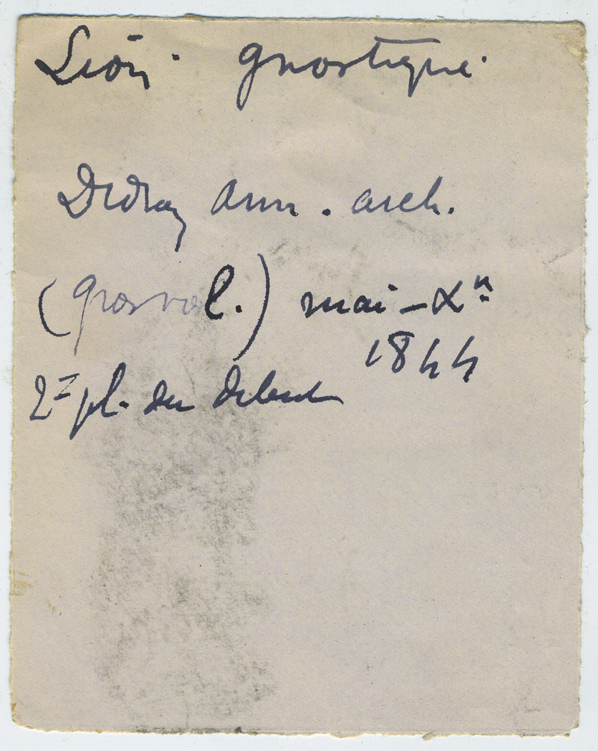 Lion gnostique
Didron ann. arch.
(gros vol.) mai - Xre
1844
2e pl. du début